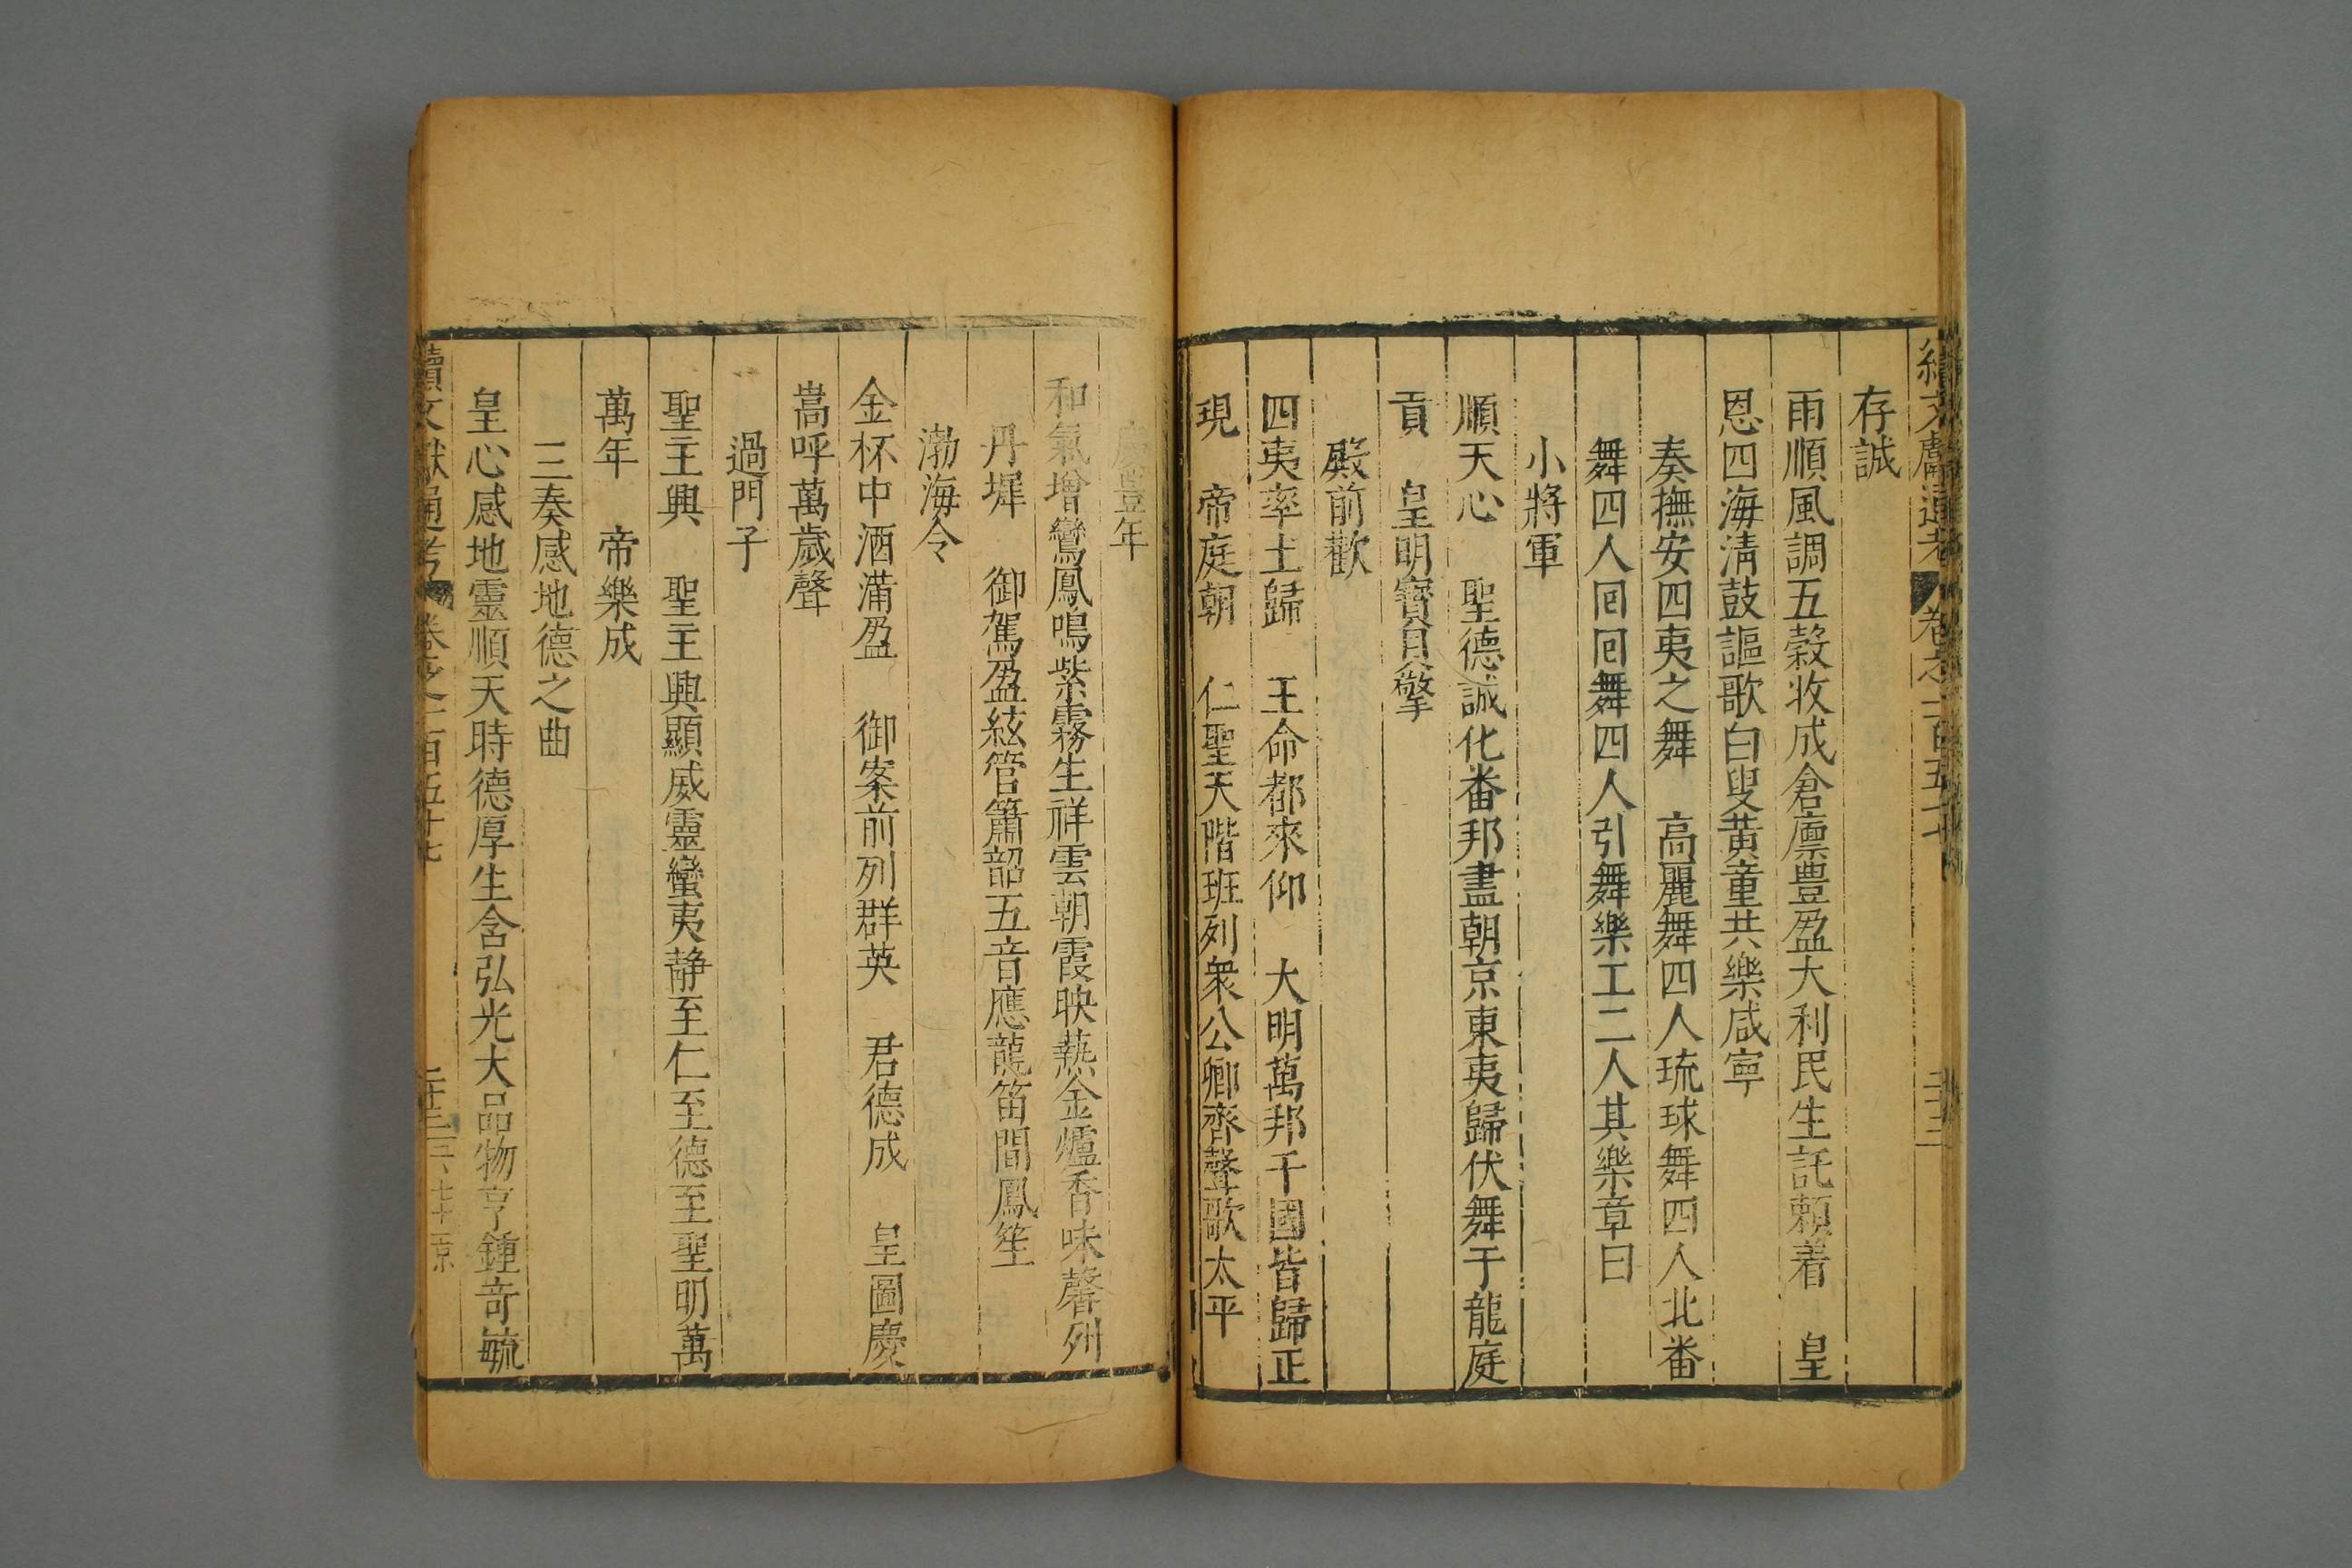 續文獻通考 卷之一百五十七
存誠
雨順風調五穀收成倉廪豊盈大利民生託賴着 皇
恩四海淸鼓謳歌白叟黄童共樂咸寧
奏撫安四夷之舞 高麗舞四人琉球舞四人北番
舞四人回回舞四人引舞樂工二人其樂章曰
小將軍
順天心 聖德誠化番邦盡朝京東夷歸伏舞于龍庭
貢 皇明寳貝擎
殿前歡
四夷率土歸 王命都來仰 大明萬邦千國皆歸正
現 帝庭朝 仁聖天階班列衆公卿齊聲歌太平
慶豐年
和氣增鸞鳳鳴紫霧生祥雲朝霞映爇金爐香味馨列
丹墀 御駕盈絃管簫韶五音應龍笛間鳳笙
渤海令
金杯中酒滿盈 御案前列群英 君德成 皇圖慶
嵩呼萬歲聲
過門子
聖主興 聖主興顯威靈蠻夷静至仁至德至聖明萬
萬年 帝樂成
三奏感地德之曲
皇心感地靈順天時德厚生含弘光大品物亨鍾竒毓
續文獻通考 卷之一百五十七